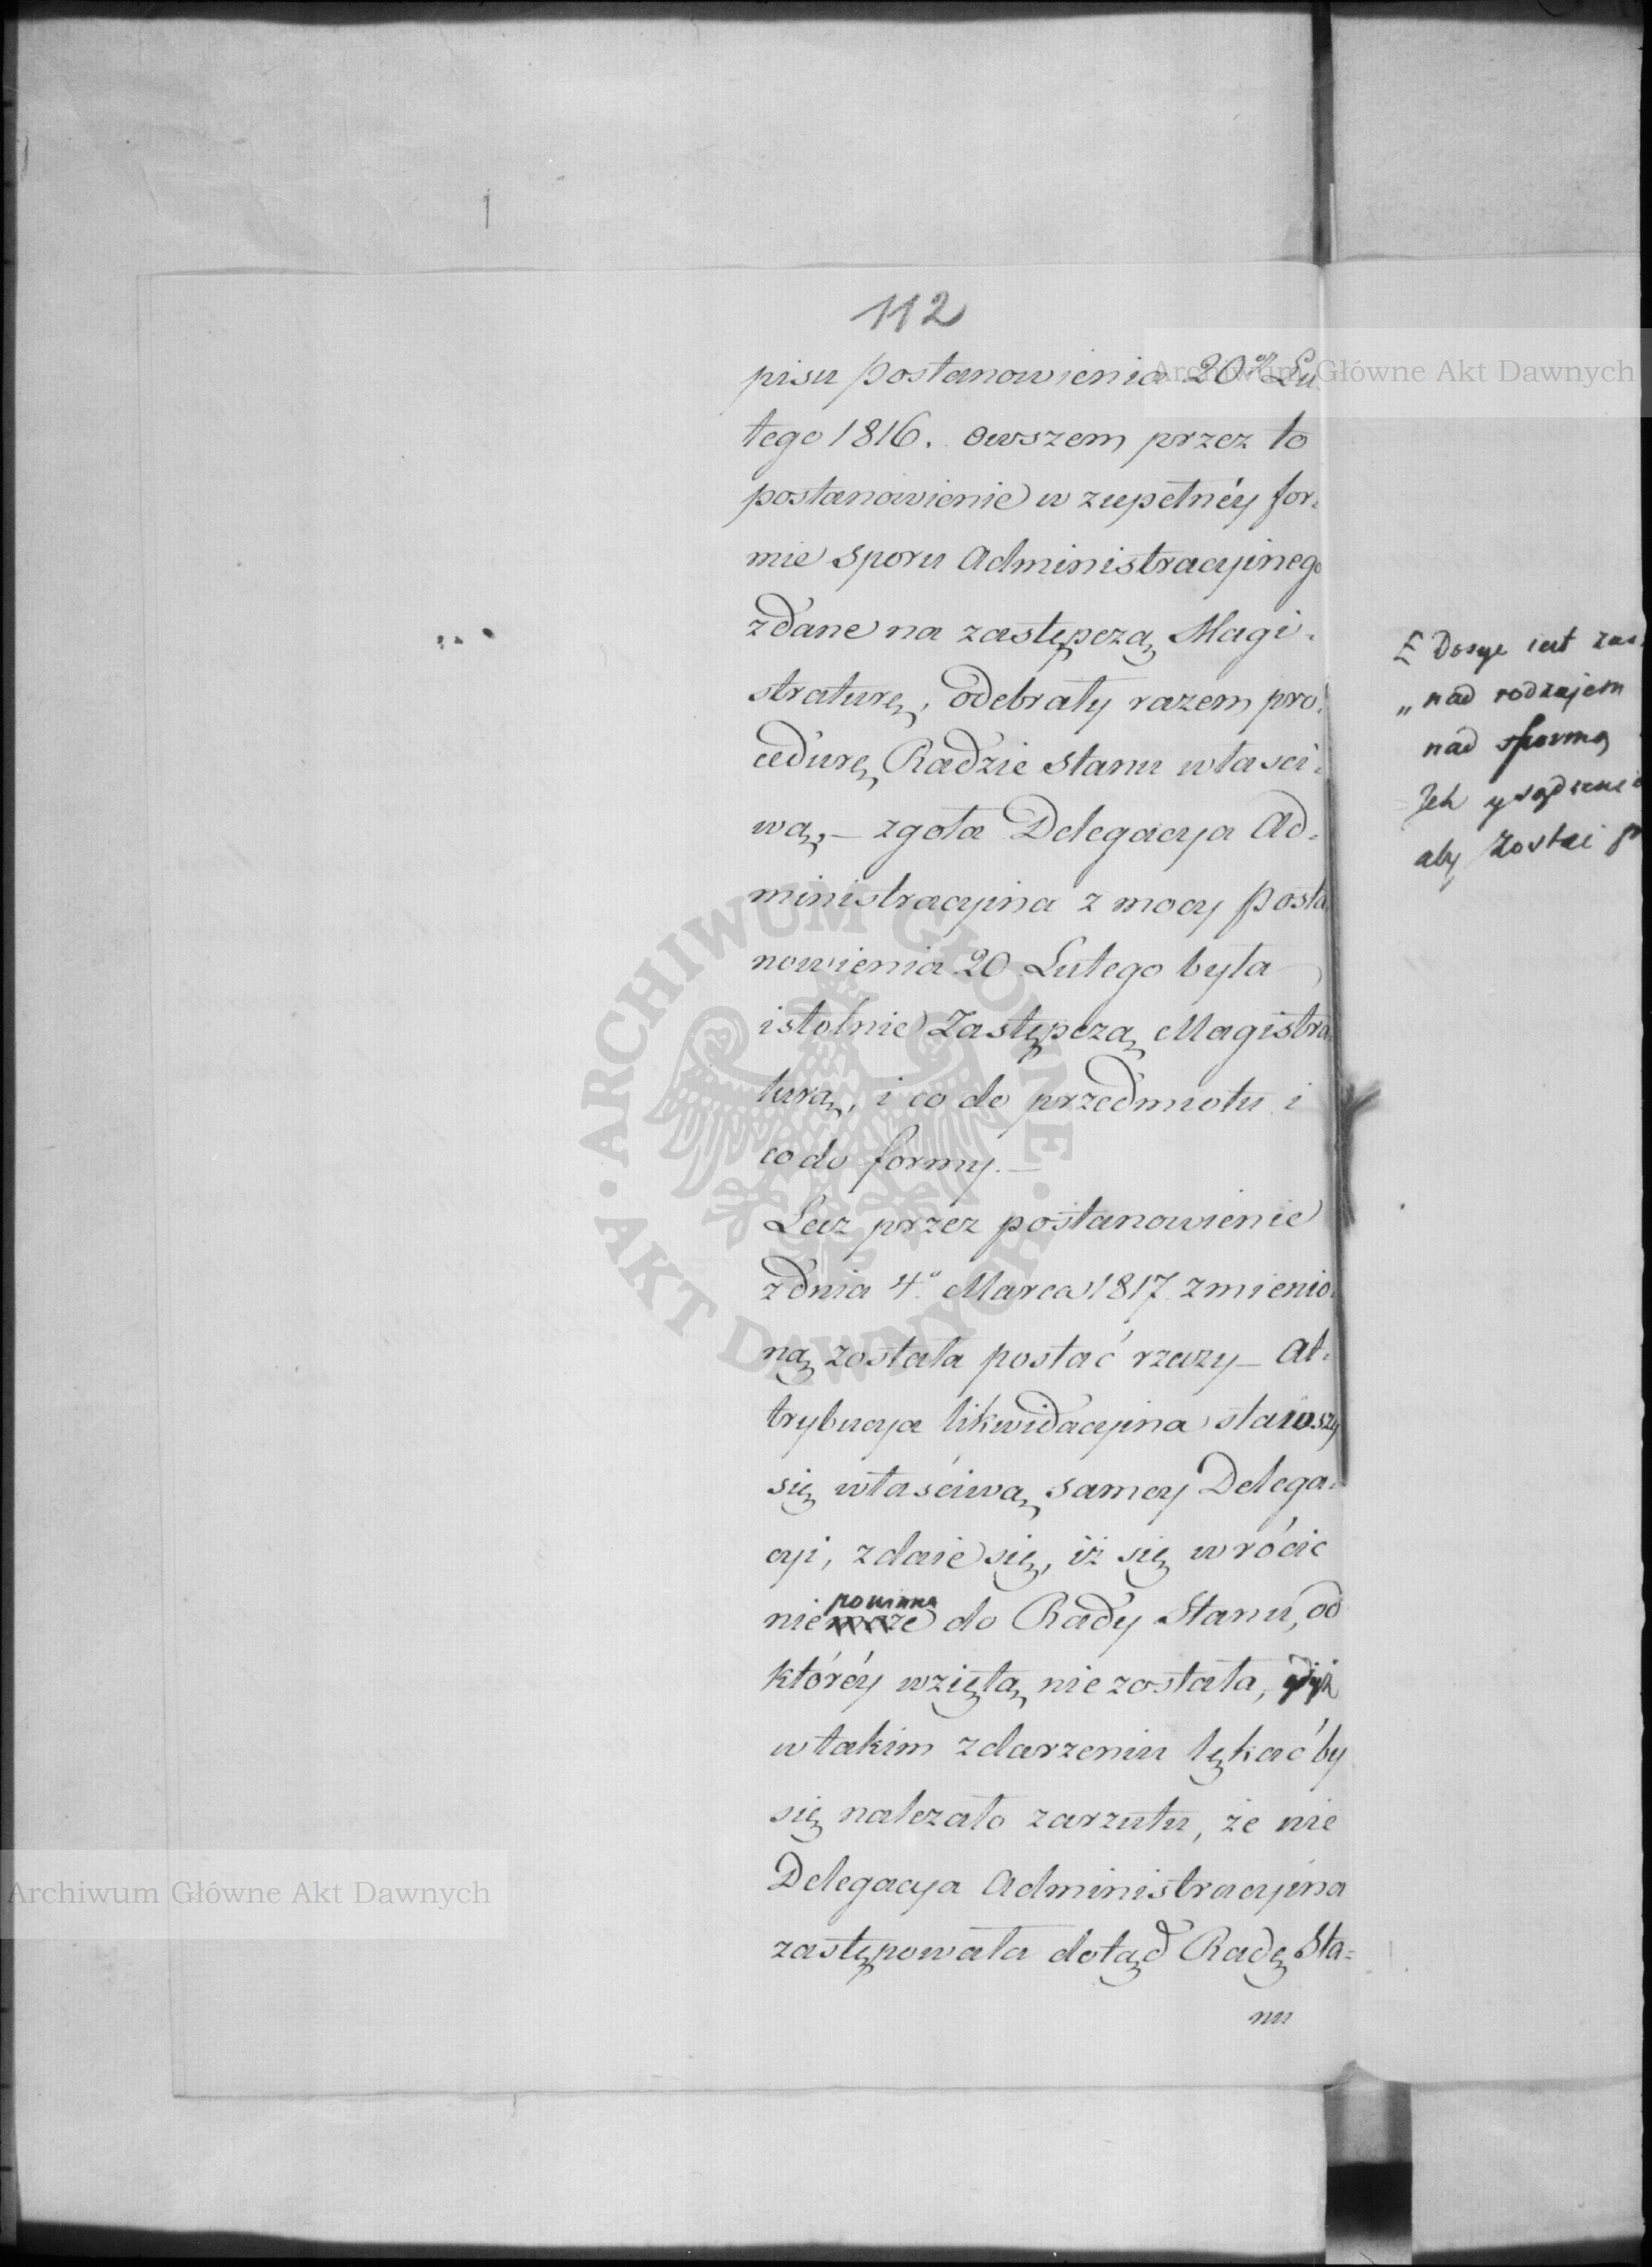 112
pisu postanowienia 20go Lu
tego 1816. owszem przez to
postanowienie w zupełnéy for=
mie sporu Administracyinego
zdane na zastępczą Magi=
straturę, odebrały razem pro=
cedurę Radzie Stanu własci=
wą, — zgoła Delegacya Ad=
ministracyina z mocy posta=
nowienia 20 Lutego była
istotnie Zastępczą Magistra=
turą, i co do przedmiotu i
co do formy. —
Lecz przez postanowienie
z dnia 4o Marca 1817 zmienio=
ną została postać rzeczy — At=
trybucya likwidacyina stawszy
się właściwą samey Delega=
cyi, zdaie się, iż się wrócic
nie może powinna do Rady Stanu, od
któréy wziętą nie została, gdyż
w takim zdarzeniu lękać by
się należało zarzutu, że nie
Delegacya Administracyina
zastępowała dotąd Radę Sta=
nu
Dosyc iest
„nad rodzajem
nad formą
aby zostać
Archiwum Główne Akt Dawnych
Archiwum Główne Akt Dawnych
ARCHIWUM GŁÓWNE · AKT DAWNYCH ·